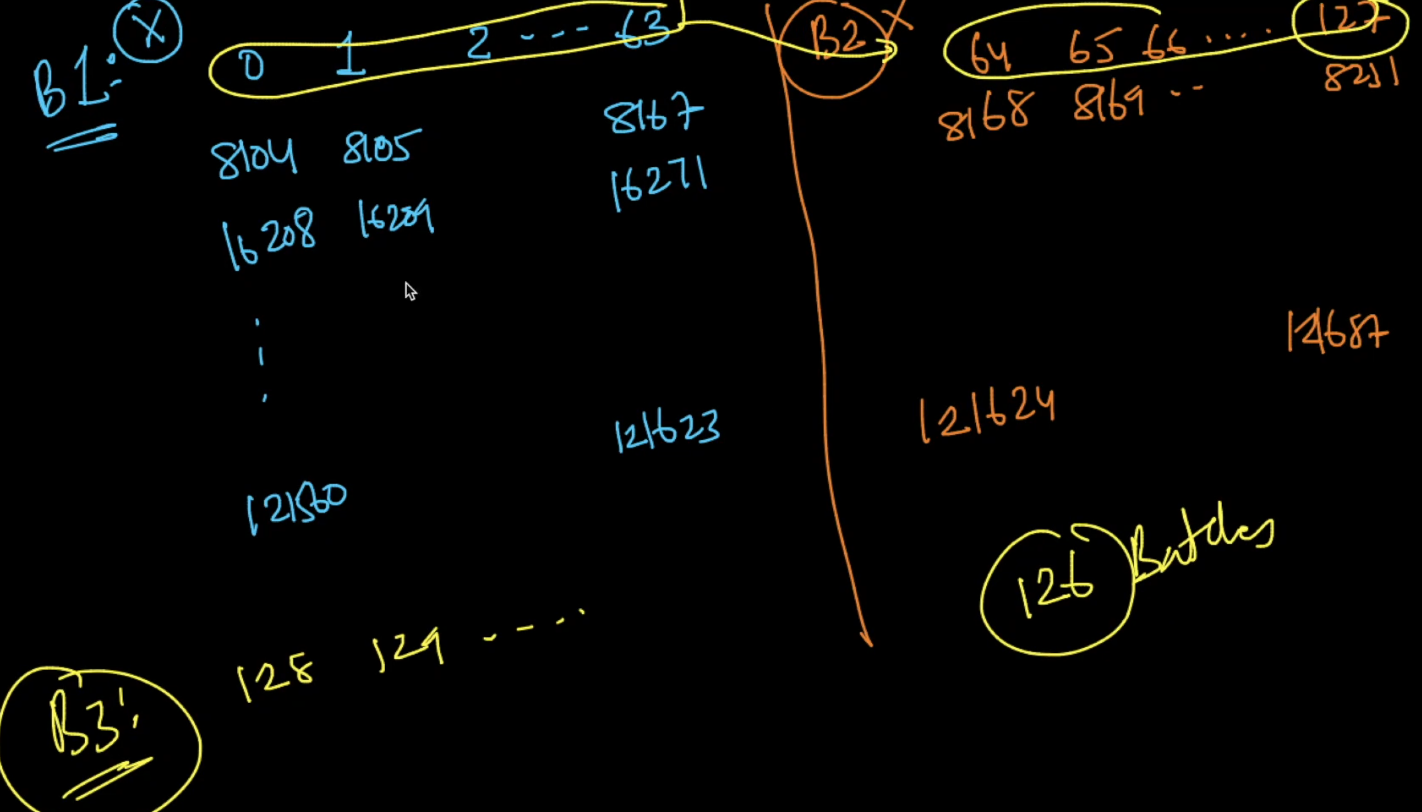 B1: X 0 1 2 --- 63
8104 8105 8167
16208 16209 16271
121623
121560
B2 X 64 65 66 ..... 127
8168 8169 .. 8231
121687
121624
126 Batches
B3: 128 129 -----